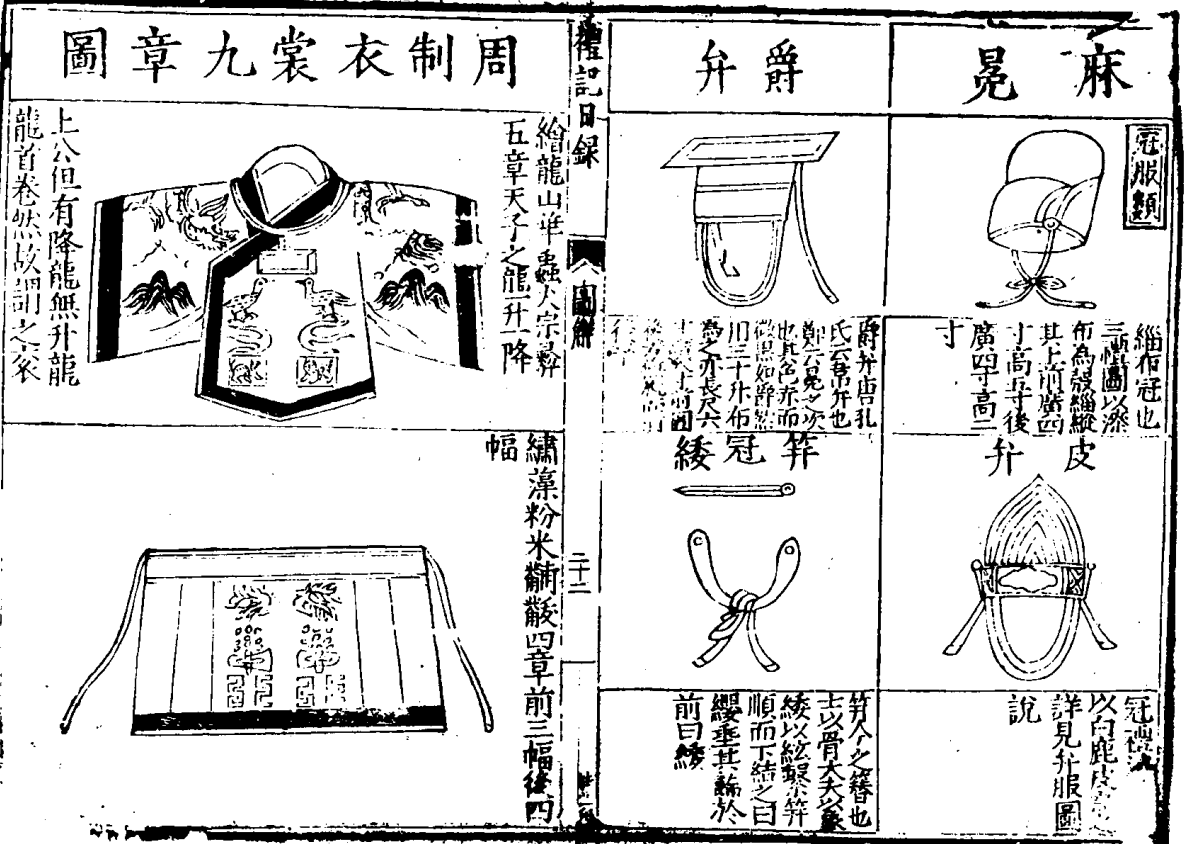 麻冕
冠服類
緇布冠也
三禮圖以漆
布為殼緇縰
其上前廣四
寸高五寸後
廣四寸高三
寸
皮弁
冠禮注
以白鹿皮為之
詳見弁服圖
說
爵弁
爵弁唐孔
氏云常弁也
鄭云冕之次
也其色赤而
微黑如爵然
用三十升布
為之亦長尺六
笄冠緌
笄今之簪也
士以骨大夫以象
緌以紘繫笄
順而下結之曰
纓垂其餘於
前曰緌
禮記目録
圖解
二十二
周制衣裳九章圖
繪龍山華蟲火宗彝
五章天子之龍一升一降
上公但有降龍無升龍
龍首卷然故謂之袞
繡藻粉米黼黻四章前三幅後四
幅